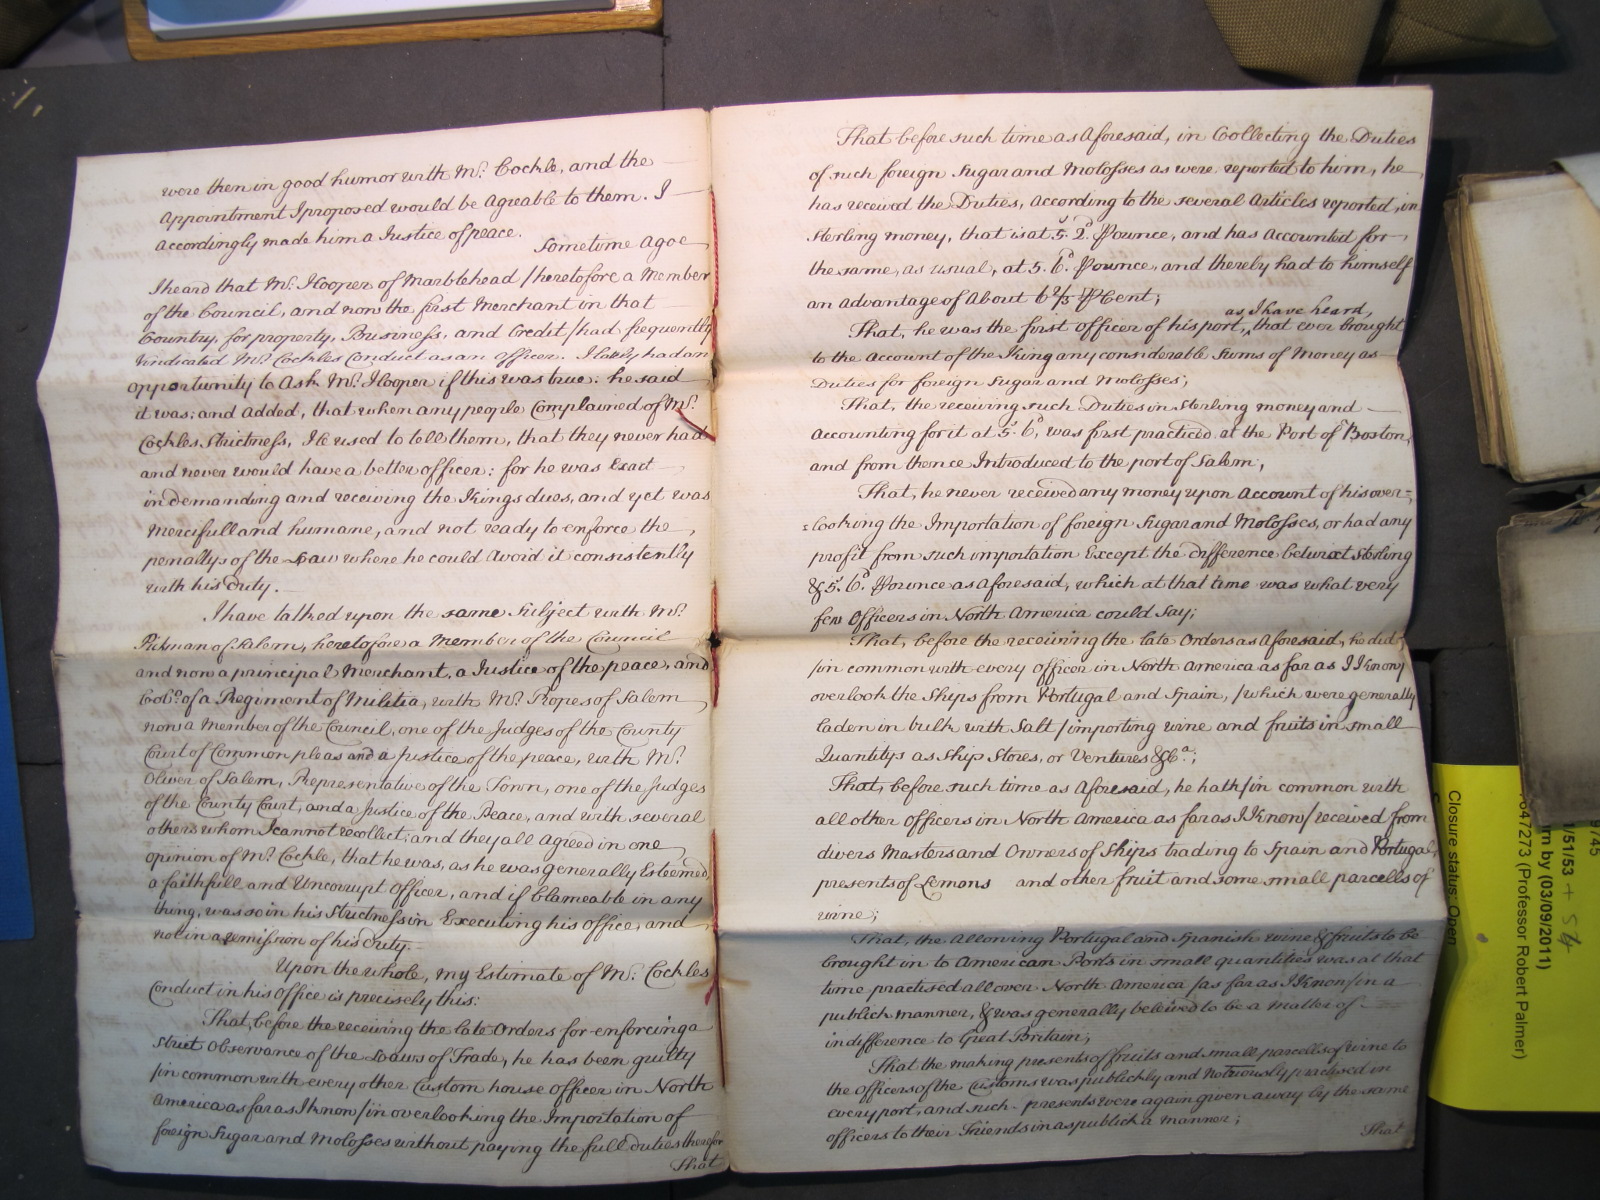 were then in good humor with Mr. Cockle, and the
Appointment I proposed would be Agreable to them. I
accordingly made him a Justice of peace.
Sometime agoe
I heard that Mr. Hooper of Marblehead /heretofore a Member
of the Council, and now the first Merchant in that
Country, for property, Business, and Credit/ had frequently
vindicated Mr. Cockles Conduct as an officer. I lately had an
opportunity to Ask Mr. Hooper if this was true: he said
it was; and Added, that when any people Complained of Mr.
Cockles Strictness, He used to tell them, that they never had
and never would have a better officer: for he was Exact
in demanding and receiving the Kings dues, and yet was
Mercifull and humane, and not ready to enforce the
penaltys of the Law where he could Avoid it consistently
with his Duty.
I have talked upon the same Subject with Mr.
Putman of Salem, heretofore a Member of the Council
and now a principal Merchant, a Justice of the peace, and
Colo. of a Regiment of Militia, with Mr. Ropes of Salem
now a Member of the Council, one of the Judges of the County
Court of Common pleas and a Justice of the peace, with Mr.
Oliver of Salem, Representative of the Town, one of the Judges
of the County Court, and a Justice of the Peace, and with several
others whom I cannot recollect; and they all Agreed in one
opinion of Mr. Cockle, that he was, as he was generally Esteemed,
a faithfull and Uncorrupt Officer, and if blameable in any
thing, was so in his Strictness in Executing his Office, and
not in a remission of his Duty.
Upon the whole, my Estimate of Mr. Cockles
Conduct in his Office is precisely this:
That, before the receiving the late Orders for enforcing a
strict Observance of the Laws of Trade, he has been guilty
/in common with every other Custom house Officer in North
America as far as I know/ in overlooking the Importation of
foreign Sugar and Molosses without paying the full duties therefor
That
That before such time as Aforesaid, in Collecting the Duties
of such foreign Sugar and Molosses as were reported to him, he
has received the Duties, According to the several Articles reported, in
Sterling money, that is at 5s. 2d. P ounce, and has Accounted for
the same, as usual, at 5. 6d. P ounce, and thereby had to himself
an advantage of About 6 2/3 P Cent;
as I have heard,
That, he was the first officer of his port, that ever brought
to the Account of the King any considerable Sums of Money as
Duties for foreign Sugar and Molosses;
That, the receiving such Duties in Sterling money and
Accounting for it at 5s. 6d, was first practiced at the Port of Boston,
and from thence Introduced to the port of Salem;
That, he never received any money upon Account of his over=
=looking the Importation of foreign Sugar and Molosses, or had any
profit from such importation Except the difference betwixt Sterling
& 5s. 6d. P ounce as Aforesaid, which at that time was what very
few Officers in North America could Say;
That, before the receiving the late Orders as Aforesaid, he did
/in common with every officer in North America as far as I Know/
overlook the Ships from Portugal and Spain, /which were generally
laden in bulk with Salt/ importing wine and fruits in small
Quantitys as Ship Stores, or Ventures &Ca.;
That, before such time as Aforesaid, he hath /in common with
all other officers in North America as far as I Know/ received from
divers Masters and Owners of Ships trading to Spain and Portugal,
presents of Lemons and other fruit and some small parcells of
wine;
That, the Allowing Portugal and Spanish wine & fruits to be
brought in to American Ports in small quantities was at that
time practised all over North America /as far as I Know/ in a
publick manner, & was generally beleived to be a Matter of
indifference to Great Britain;
That the making presents of fruits and small parcells of wine to
the Officers of the Customs was publickly and notoriously practised in
every port, and such presents were again given away by the same
officers to their Friends in as publick a manner;
That
9745
1/51/53 + 54
rn by (03/09/2011)
647273 (Professor Robert Palmer)
Closure status: Open